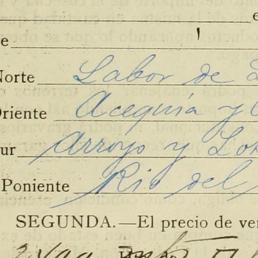 e
e
Norte Labor de
Oriente Acequia y
ur Arroyo y Lo
Poniente Rio del
SEGUNDA.—El precio de ve